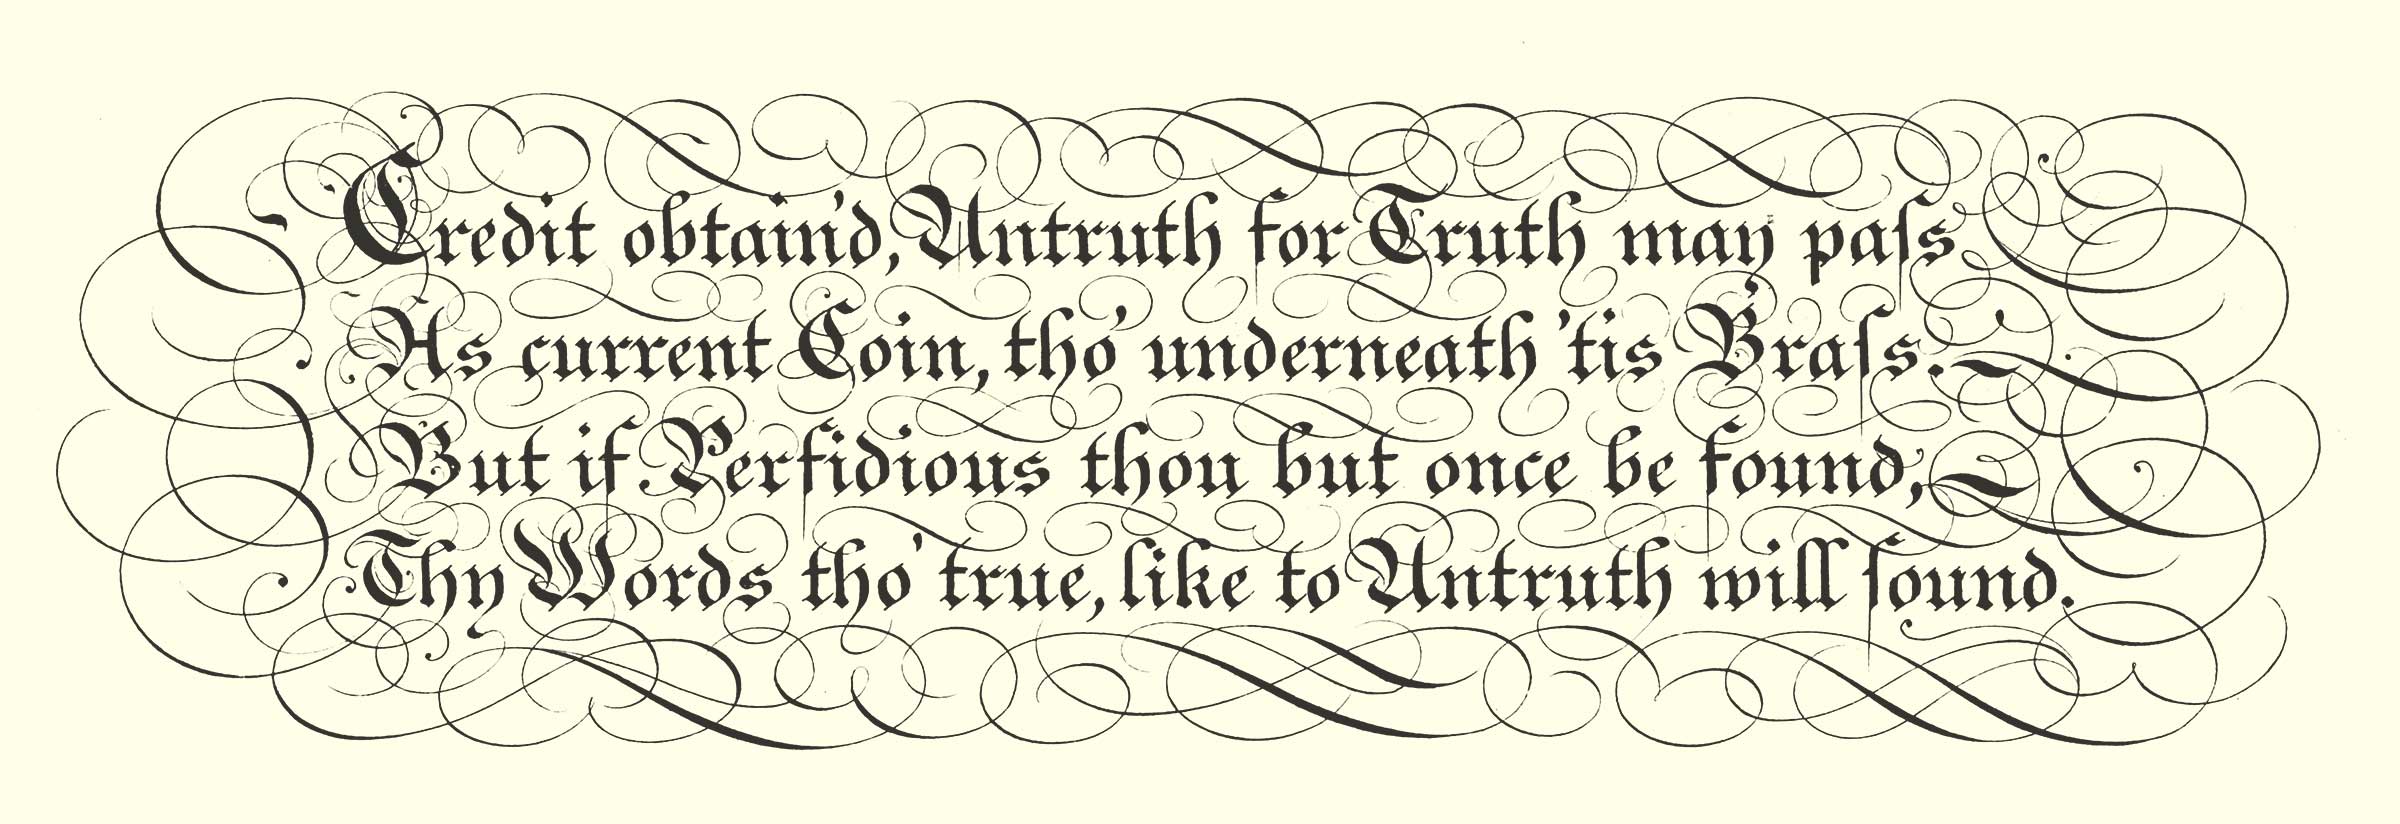 Credit obtain'd, Untruth for Truth may paſs
As current Coin, tho' underneath 'tis Braſs.
But if Perfidious thou but once be found,
Thy Words tho' true, like to Untruth will ſound.